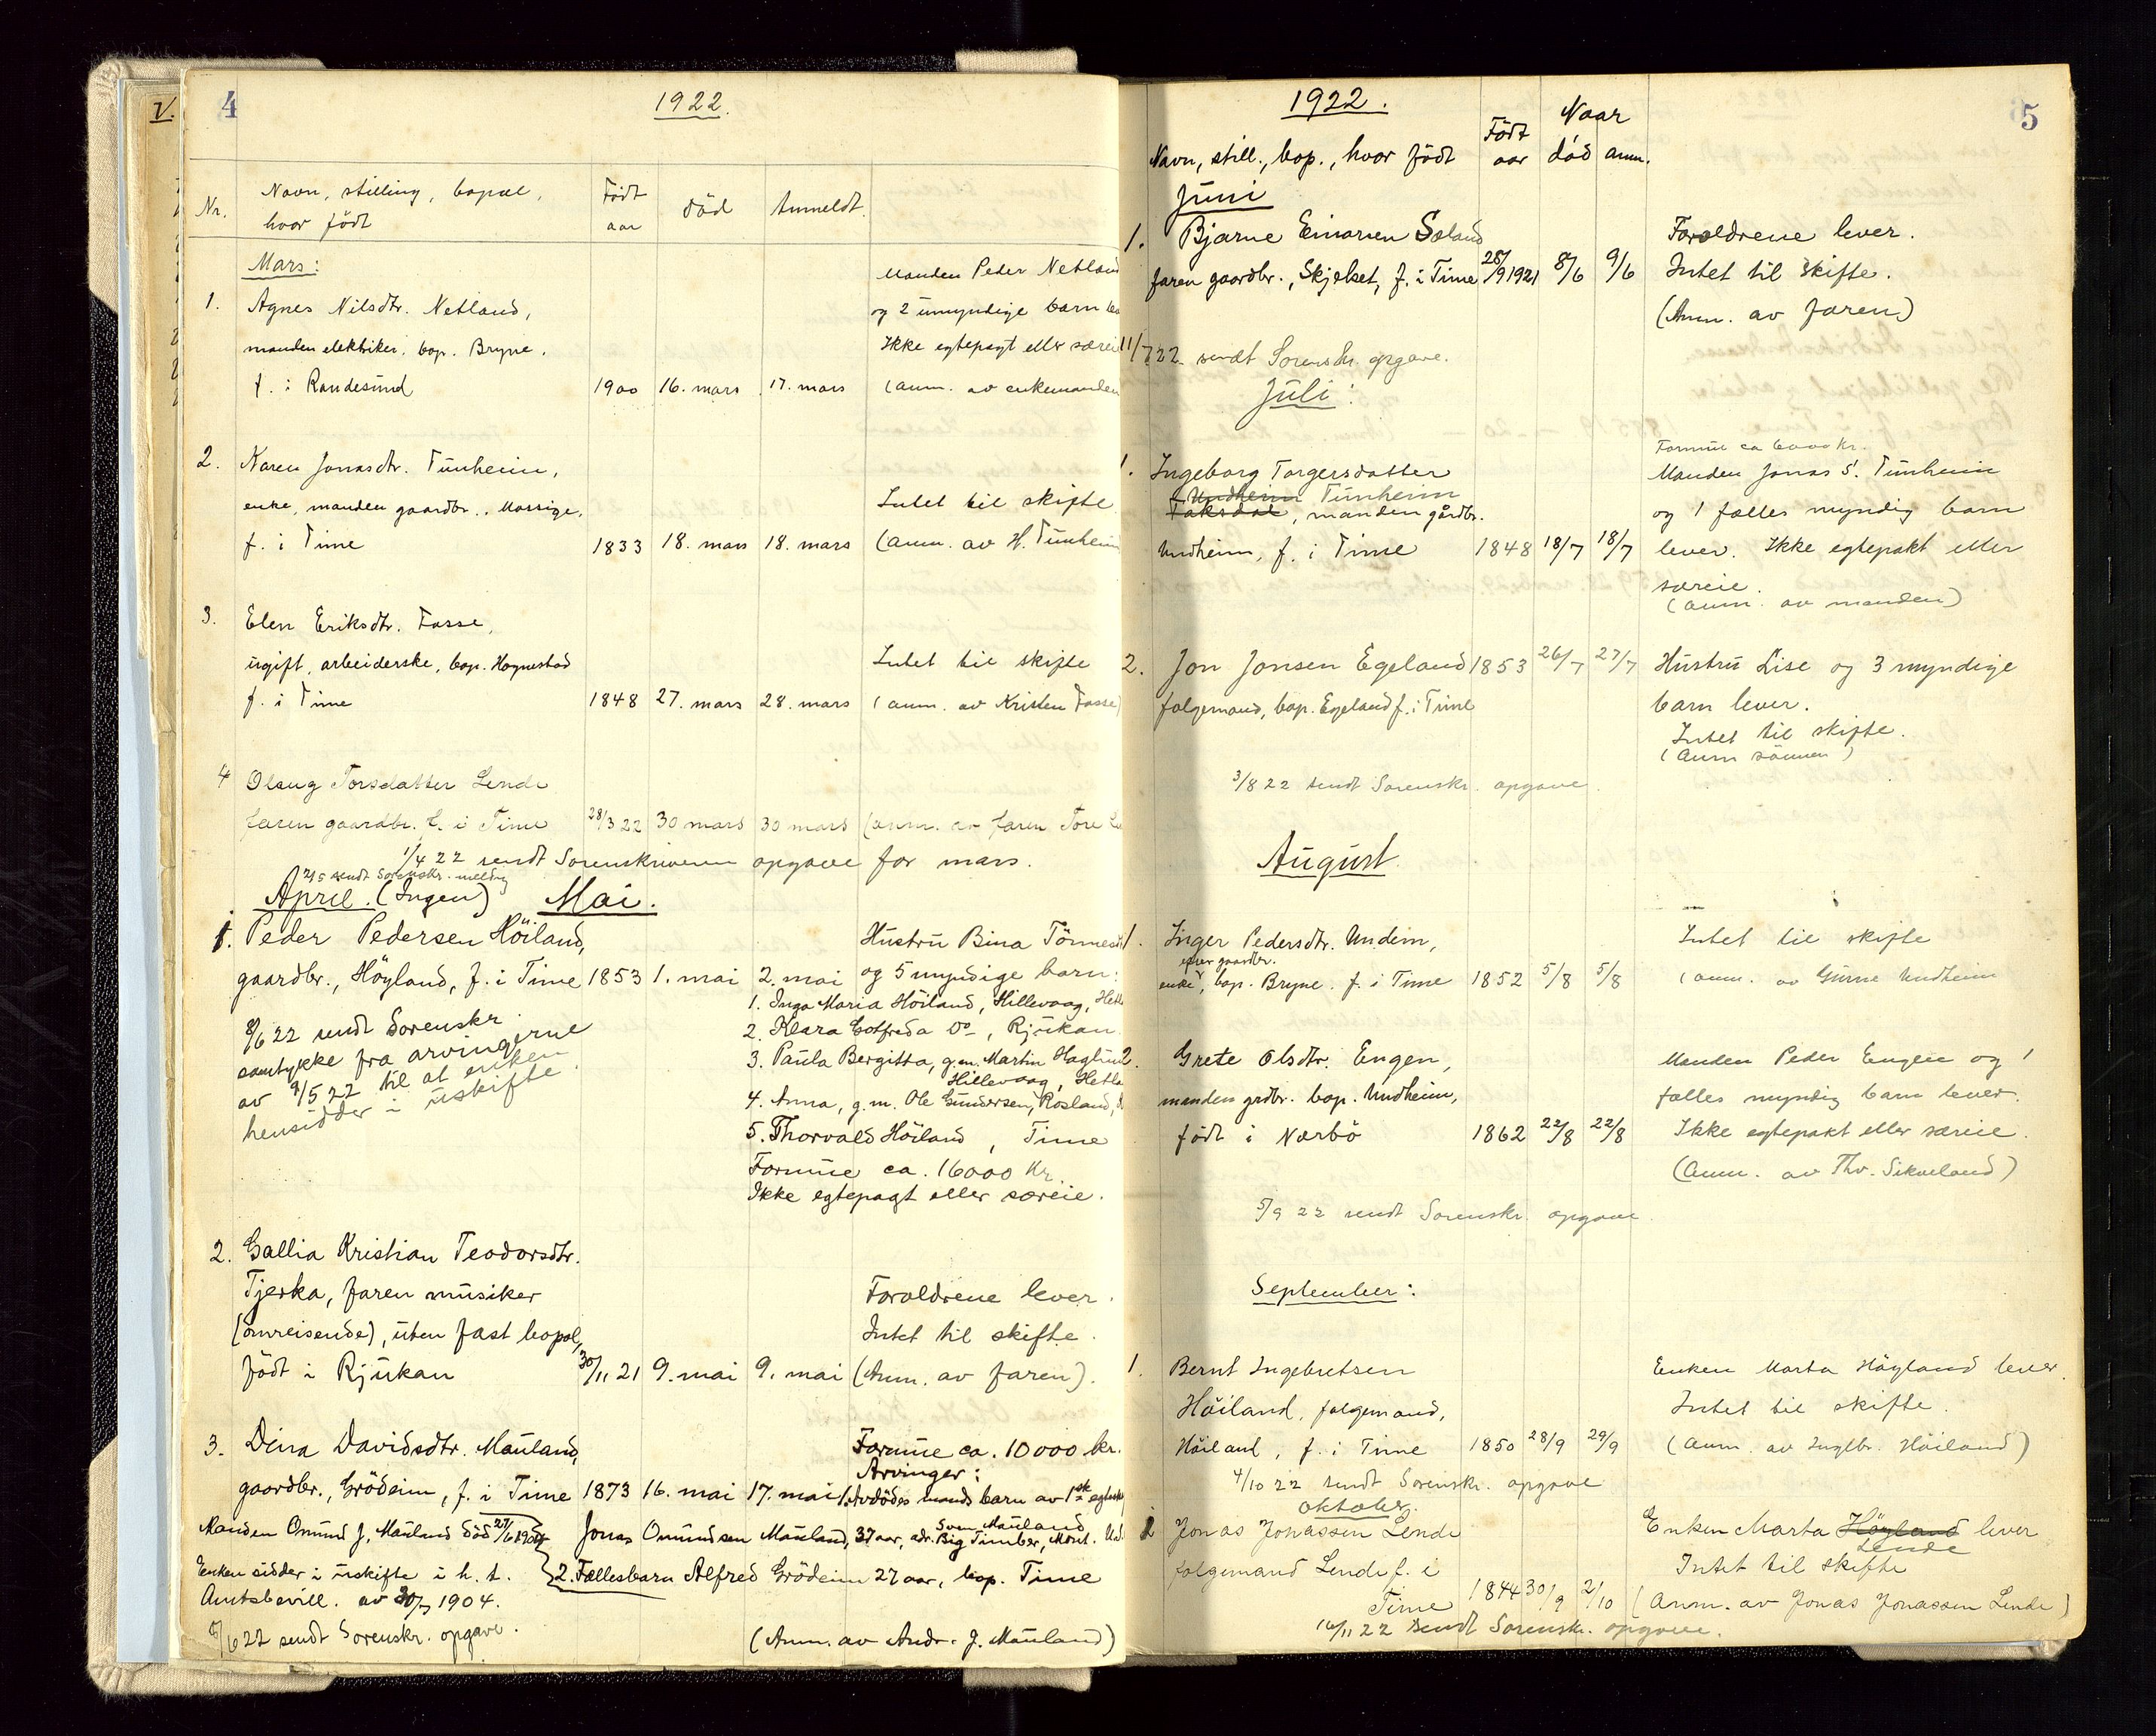 V.
4
1922.
Nr.
Navn, stilling, bopæl,
hvor født
Født
aar
död
Anmeldt.
Mars:
1. Agnes Nilsdtr. Netland,
manden elektriker, bop. Bryne.
f. i Randesund 1900 16. mars 17. mars
Manden Peder Netland
og 2 umyndige barn
Ikke egtepagt eller særeie
(anm. av enkemanden
2. Karen Jonasdtr. Tunheim,
enke, manden gaardbr., Mossige,
f. i Time 1833 18. mars 18. mars
Intet til skifte
(anm. av H. Tunheim
3. Elen Eriksdtr. Fosse,
ugift, arbeiderske, bop. Hognestad
f. i Time 1848 27. mars 28. mars
Intet til skifte
(anm. av Kristen Fosse)
4 Olaug Torsdatter Lende
faren gaardbr. f. i Time 28/3 22 30 mars 30 mars (anm. av faren Tore
1/4 22 sendt Sorenskriveren opgave for mars.
2/5 sendt Sorenskr. melding
April. (Ingen) Mai.
1. Peder Pedersen Höiland,
gaardbr., Höyland, f. i Time 1853 1. mai 2. mai
Hustru Bina Tönnesd
og 5 myndige barn:
1. Inga Maria Höiland, Hillevaag,
2. Klara Gotfreda Do, Rjukan
3. Paula Bergitta, g.m. Martin
Hillevaag, Hetla
4. Anna, g.m. Ole Gundersen, Rosland,
5. Thorvald Höiland, Time
Formue ca. 16000 Kr.
Ikke egtepagt eller særeie.
8/6 22 sendt Sorenskr.
samtykke fra arvingerne
av 9/5 22 til at enken
hensidder i uskifte.
2. Gallia Kristian Teodorsdtr.
Tjerka, faren musiker
(omreisende), uten fast bopæl,
født i Rjukan 30/11 21 9. mai 9. mai
Forældrene lever.
Intet til skifte.
(Anm. av faren).
3. Dina Davidsdtr. Mauland,
gaardbr., Grödeim, f. i Time 1873 16. mai 17. mai
Formue ca. 10000 kr.
Arvinger:
1. Avdödes mands barn av 1ste
Manden Omund J. Mauland död 27/6 1904
Jonas Omundsen Mauland, 37 aar, adr. Big Timber, Mont.
Enken sidder i uskifte i h. t.
2. Fællesbarn Alfred Grödeim 27 aar, bop. Time
Amtsbevill. av 30/7 1904.
8/6 22 sendt Sorenskr. opgave.
(Anm. av Andr. J. Mauland)
5
1922.
Navn, still., bop., hvor født
Født
aar
Naar
död anm.
Juni
1. Bjarne Einarsen Søland
faren gaardbr., Skjelset, f. i Time 28/9 1921 8/6 9/6
Forældrene lever.
Intet til skifte.
(Anm. av faren)
11/7 22 sendt Sorenskr. opgave.
Juli:
1. Ingeborg Torgersdatter
Undheim Tunheim
Taksdal, manden gårdbr.
Undheim, f. i Time 1848 18/7 18/7
Formue ca 6000 kr.
Manden Jonas S. Tunheim
og 1 fælles myndig barn
lever. Ikke egtepakt eller
særeie.
(anm. av manden)
2. Jon Jonsen Egeland 1853 26/7 27/7
følgemand, bop. Egeland f. i Time
Hustru Lise og 3 myndige
barn lever.
Intet til skifte.
(Anm sönnen)
3/8 22 sendt Sorenskr. opgave.
August
1. Inger Pedersdtr. Undeim,
efter gaardbr.
enke, bop. Bryne. f. i Time 1852 5/8 5/8
Intet til skifte
(anm. av Gurine Undheim
2. Grete Olsdtr. Engen,
manden grdbr. bop. Undheim,
født i Nærbö 1862 22/8 22/8
Manden Peder Engen og 1
fælles myndig barn lever.
Ikke egtepakt eller særeie.
(Anm. av Thv. Sikveland)
5/9 22 sendt Sorenskr. opgave.
September:
1. Bernt Ingebretsen
Höiland, følgemand,
Höiland, f. i Time 1850 28/9 29/9
Enken Marta Höyland lever.
Intet til skifte.
(Anm. av Inglbr. Höiland)
4/10 22 sendt Sorenskr. opgave
Oktober.
Jonas Jonassen Lende
følgemand Lende f. i
Time 1844 30/9 2/10
Enken Marta Höyland lever
Lende
Intet til skifte
(Anm. av Jonas Jonassen Lende)
16/11 22 sendt Sorenskr. opgave.